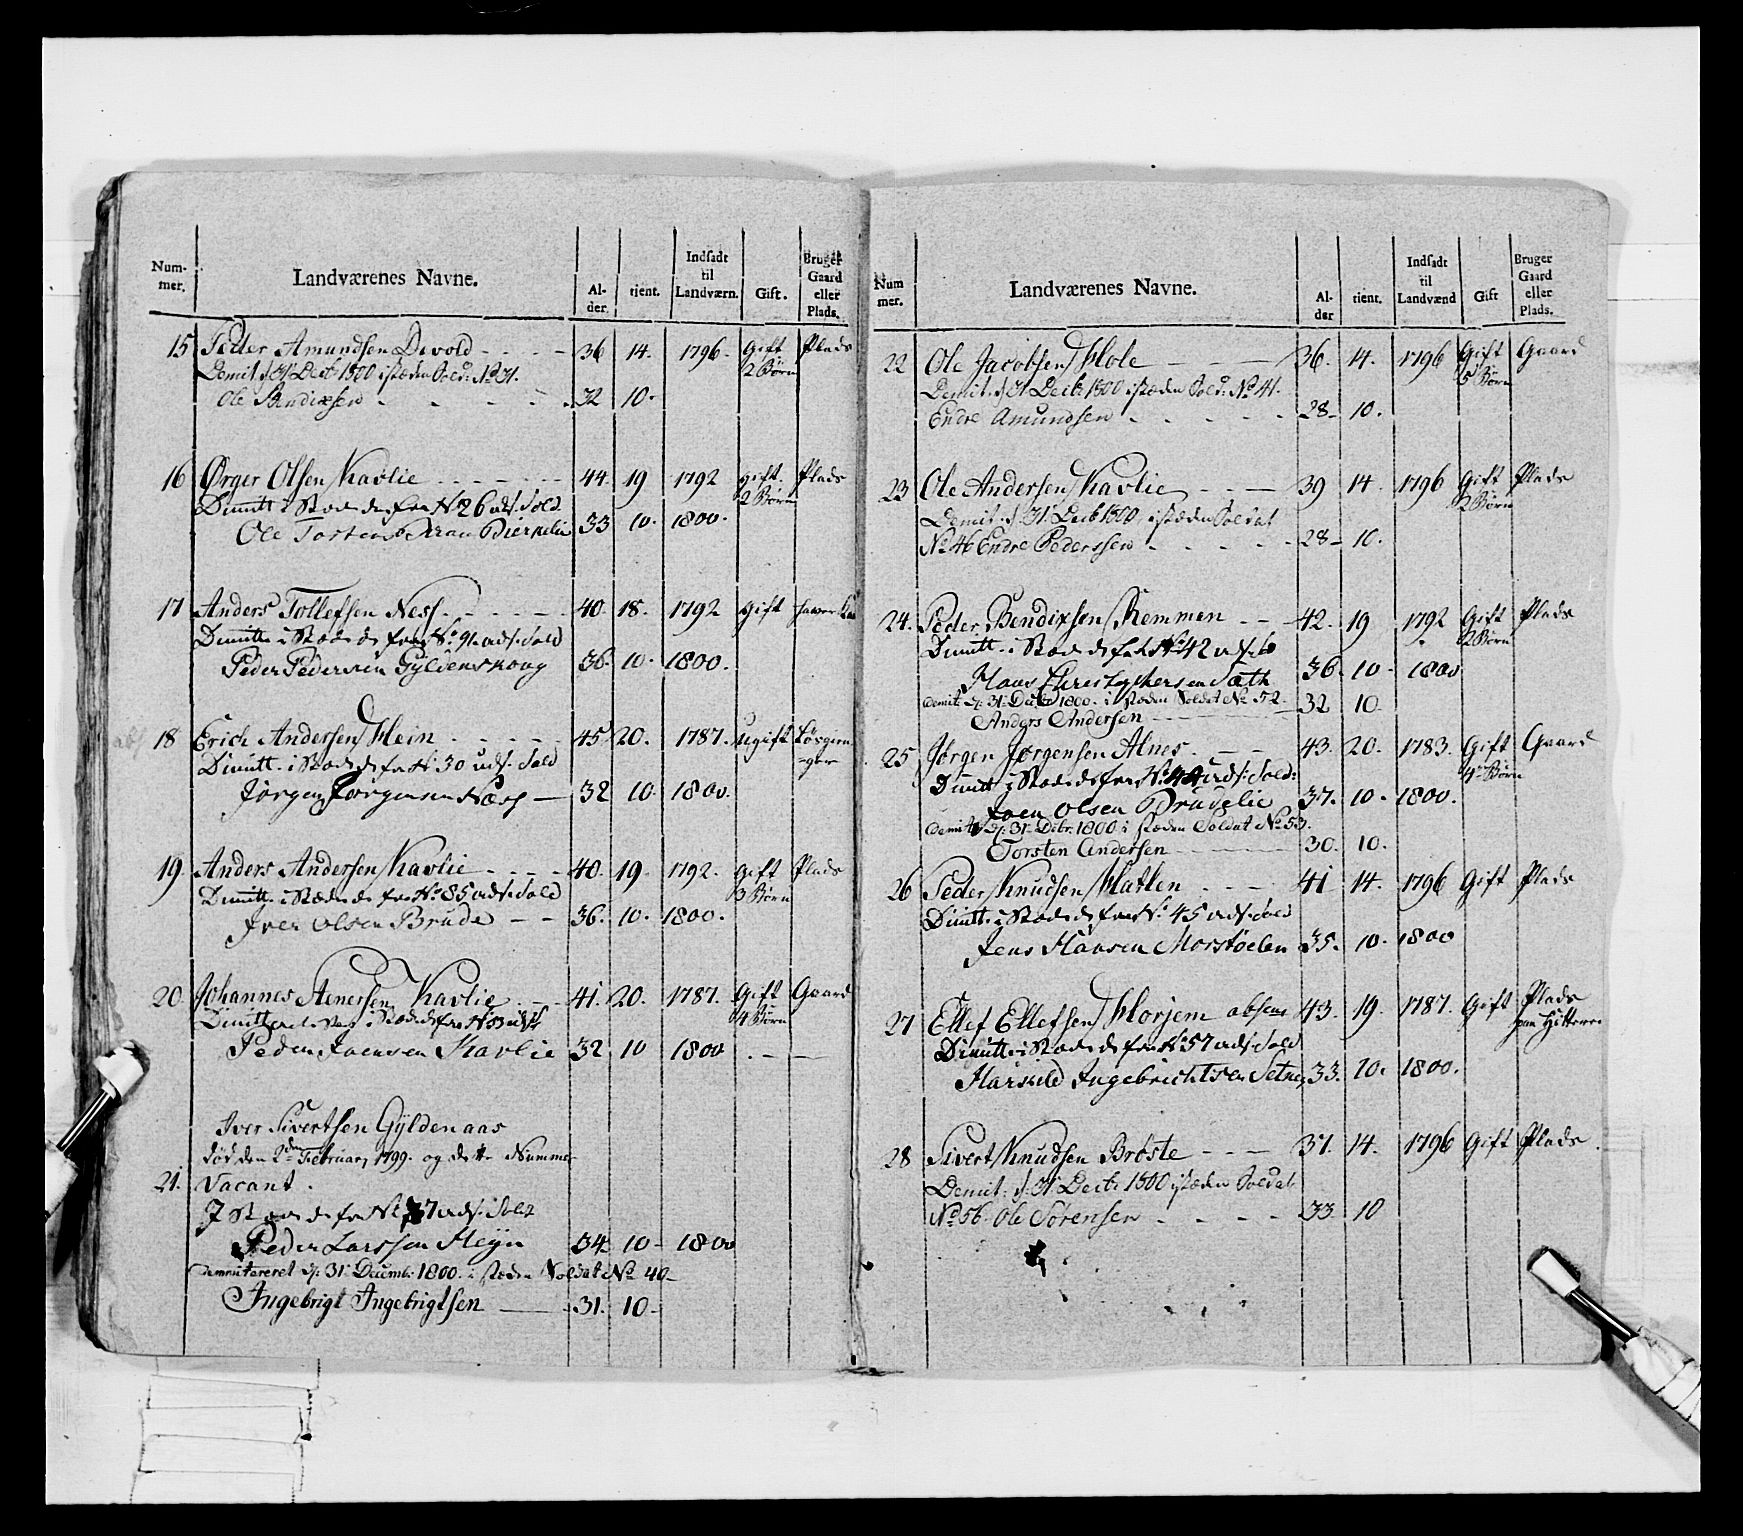 Num-
mer.
Landværenes Navne.
Al-
der.
tient.
Indsadt
til
Landværn.
Gift.
Bruger
Gaard
eller
Plads.
15 Peder Amundsen Devold 36 14. 1796. Gift Plads
2 Børn
Demit. d. 31 Decb 1800 i stæden Sold: No 31.
Ole Bendixsen 32 10.
16 Ørger Olsen Havlie 44. 19 1792 gift. Plads
2 Børn
Dimitt i Stæden No 26 Sold
Ole Bierkelie 33 10. 1800.
17 Anders Tollefsen Ness 40. 18. 1792 gift
Dimitt. i Stæden No Sold
Peder Pedersen Gyldenskoug 36. 10. 1800.
18 Erich Andersen Hein 45 20. 1787. ugift
Dimitt. i Stæden No 30 Sold
Jørgen Jørgensen Næss 32 10. 1800.
19 Anders Andersen Havlie 40. 19. 1792. gift Plads
3 Børn
Dimitt. i Stæden No 85 Sold
Iver Olsen Brude 36. 10. 1800.
20 Johannes Havlie 41. 20. 1787. Gift Gaard
4 Børn
Peder Joensen Havlie 32 10 1800
Iver Sivertsen Gyldenaas
død den 2den Februar 1799. og dette Nummer
21. Vacant.
Peder Larssen Heijn 34. 10 1800
Demitteret d: 31 Decemb: 1800. i stæden Soldat No 40
Ingebrigt Ingebrigtsen 31. 10
Num
mer.
Landværenes Navne.
Al-
der
tient.
Indsadt
til
Landværnd
Gift
Bruger
Gaard
eller
Plads.
22 Ole Jacobsen Hole 36. 14. 1796 Gift Gaard
5 Børn
Demit. d. 31 Decb 1800 i stæden Sold: No 41.
Endre Amundsen 28 10.
23 Ole Andersen Havlie 39 14. 1796 Gift Plads
2 Børn
Demit. d. 31 Decb 1800, i stæden Soldat
No 46 Endre Pederssen 28 10.
24. Peder Bendixsen 42. 19 1792 Gift Plads
2 Børn
Dimitt. i Stæden No 42
Hans Christophersen Sæth 36. 10 1800
Demit d: 31 Decbr 1800. i stæden Soldat No 52.
Anders Andersen 32 10
25 Jørgen Jørgensen Alnes 43. 20. 1783. Gift Gaard
4 Børn
Dimitt i Stæden No 44 Sold:
Joen Olsen Brudelie 37. 10. 1800.
Demit d: 31 Dcbr. 1800 i stæden Soldat No 53.
Torsten Andersen 30. 10.
26 Peder Knudsen Hatlen 41 14. 1796 Gift Plads
Dimitt. i Stæden No 45 Sold
Jens Hansen Morstøelen 35. 10. 1800
27 Ellef Ellefsen absent 43. 19. 1787. Gift Plads
paa Hitteren
Dimitt. i Stæden No 57 Sold
Harskild Ingebrichtsen 33. 10. 1800.
28 Sivert Knudsen Brøste 37. 14. 1796 Gift Plads
Demit. d. 31 Decb 1800 i stæden Soldat
No 56. Ole Sørensen 33 10